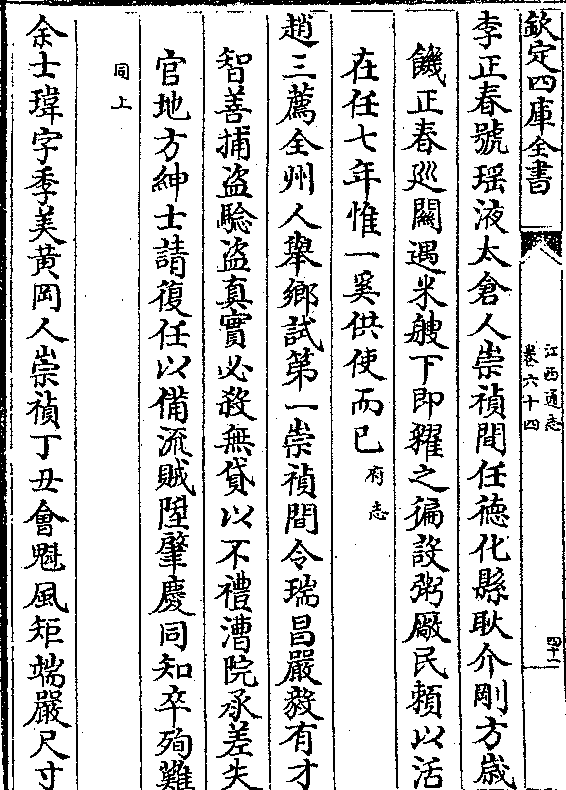 欽定四庫全書
江西通志
卷六十四
四十一
李正春號瑶液太倉人崇禎間任德化縣耿介剛方歳
饑正春廵關遇米艘下即糴之徧設粥廠民頼以活
在任七年惟一奚供使而已府志
趙三薦全州人舉鄉試第一崇禎間令瑞昌嚴毅有才
智善捕盗驗盗真實必殺無貸以不禮漕院承差失
官地方紳士請復任以備流賊陞肇慶同知卒殉難
同上
余士瑋字季美黄岡人崇禎丁丑會魁風矩端嚴尺寸